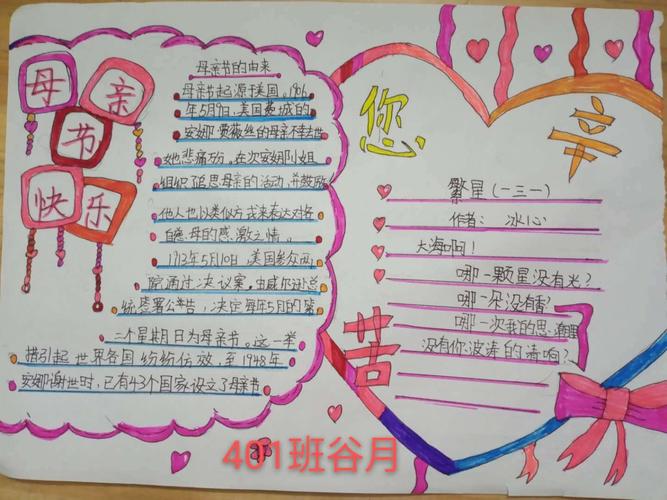 母亲
节
快乐
母亲节的由来
母亲节起源于美国。1906
年5月9日,美国费城的
安娜·贾薇丝的母亲不幸去世
她悲痛万份,在次安娜小姐
组织追思母亲的活动,并鼓励
他人也以类似方式来表达对各
自慈母的感激之情。
1913年5月10日,美国参众两
院通过决议案,由威尔逊总
统签署公告,决定每年5月的第
二个星期日为母亲节。这一举
措引起世界各国纷纷仿效,至1948年
安娜谢世时,已有43个国家设立了母亲节
您
辛
苦
了
繁星(一三一)
作者:冰心
大海啊!
哪一颗星没有光?
哪一朵没有香?
哪一次我的思潮里
没有你波涛的清响?
401班谷月